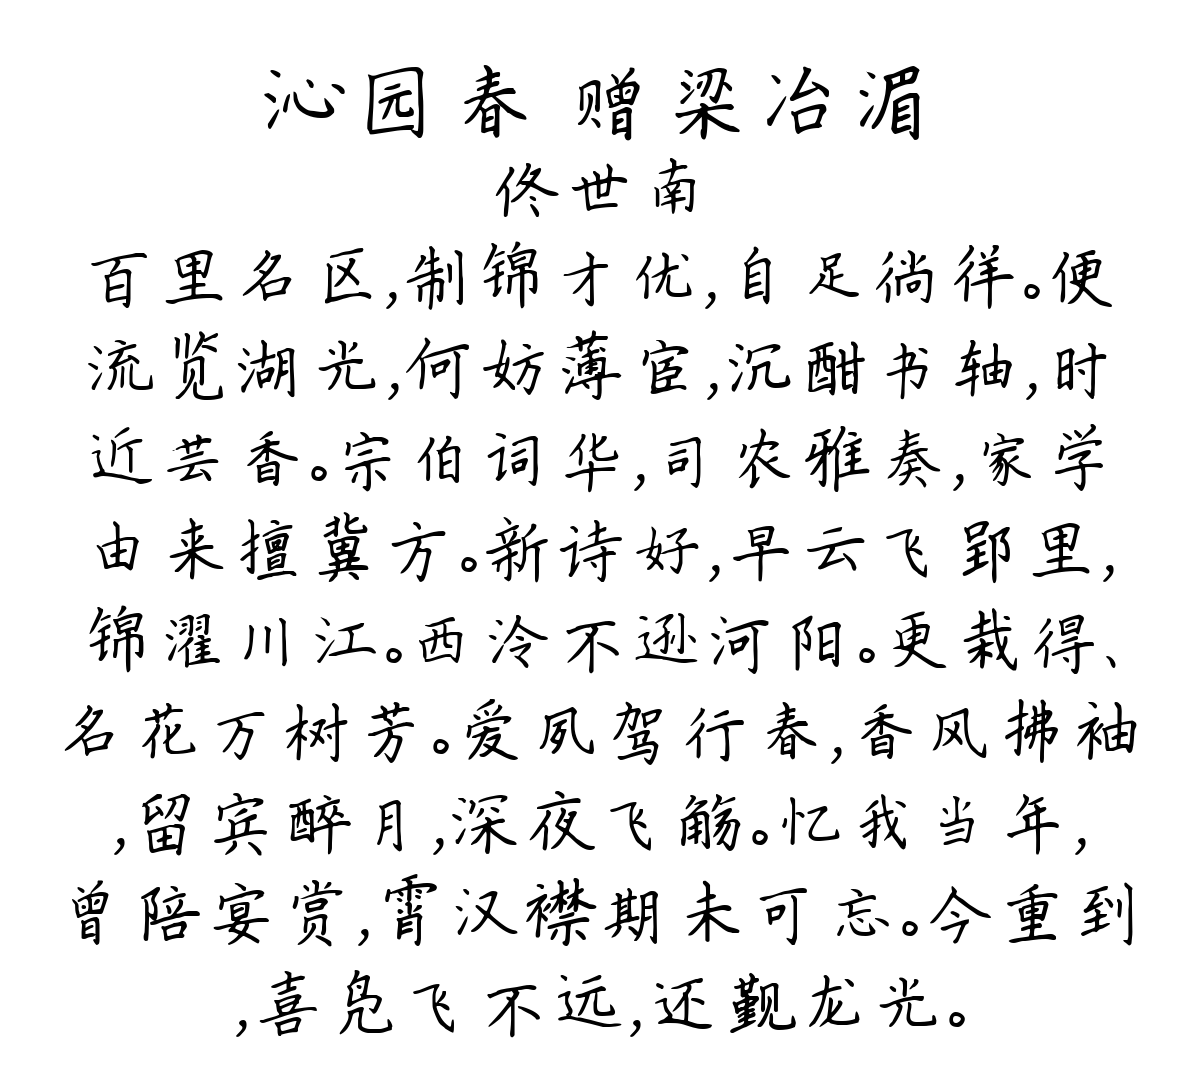 沁园春 赠梁冶湄
佟世南
百里名区,制锦才优,自足徜徉。便
流览湖光,何妨薄宦,沉酣书轴,时
近芸香。宗伯词华,司农雅奏,家学
由来擅冀方。新诗好,早云飞郢里,
锦濯川江。西泠不逊河阳。更栽得、
名花万树芳。爱夙驾行春,香风拂袖
,留宾醉月,深夜飞觞。忆我当年,
曾陪宴赏,霄汉襟期未可忘。今重到
,喜凫飞不远,还觐龙光。